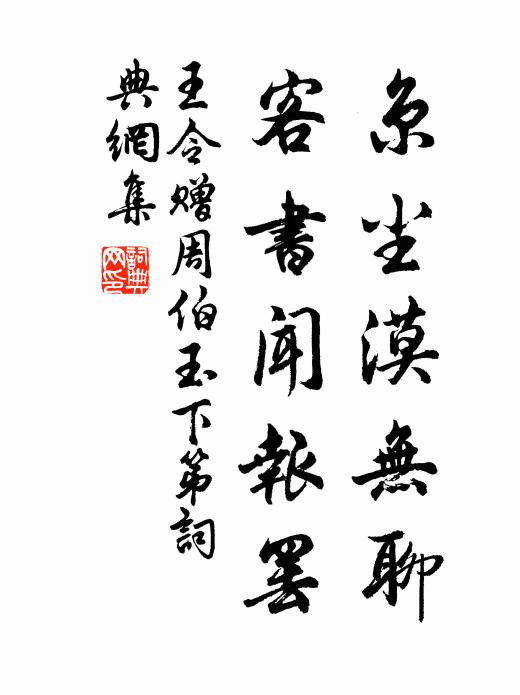 京尘漠無聊
客書聞報罷
王令赠周伯玉下第詞
典網集
詞典
网印